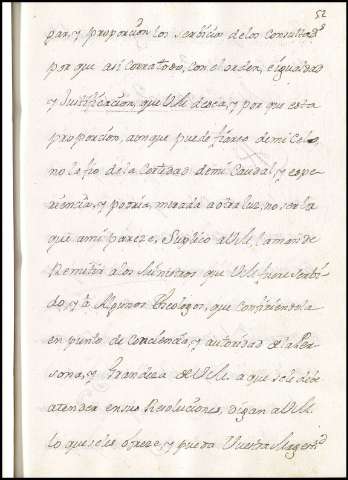 52
par, y proporción los servicios de los Consultad.s
por que asi corra todo, con el orden, e igualdad
y Justificacion, que VM. desea, y por que esta
proporcion, aunque puede fiarse de mi Celo,
no la fio de la Cortedad de mi Caudal, y espe-
riencia, y podria, mirada a otra luz, no ser la
que a mi pareze, Suplico a VM. la mande
Remitir a los Ministros que VM. fuere servi-
do, y à Algunos Theologos, que confiriendola
en punto de Conciencia, y autoridad de la Per-
sona, y Grandeza de VM. a que se le debe
atender en sus Resoluciones, digan a VM.
lo que se les ofreze, y pueda Vuestra Magest.d